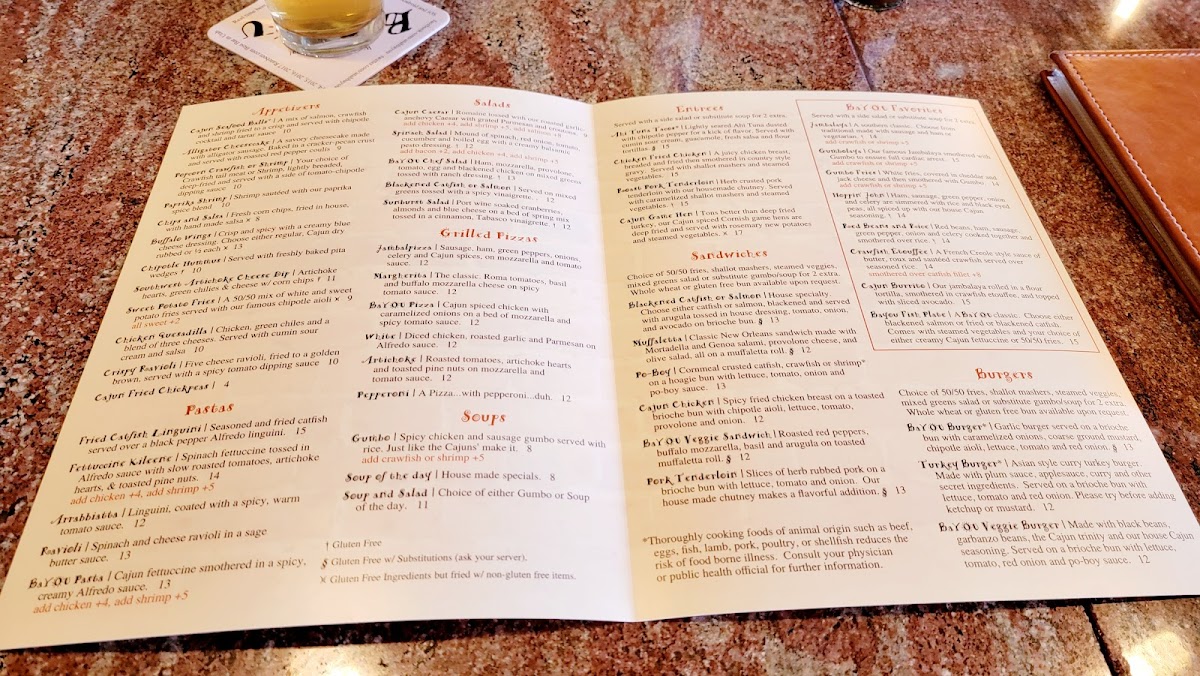 Appetizers
Cajun Seafood Balls* | A mix of salmon, crawfish
and shrimp fried to a crisp and served with chipotle
cocktail and tartar sauce 10
Alligator Cheesecake | A savory cheesecake made
with alligator sausage. Baked in a cracker-pecan crust
and served with roasted red pepper coulis 9
Popcorn Crawfish or Shrimp | Your choice of
Crawfish tail meat or Shrimp, lightly breaded,
deep-fried and served with a side of tomato-chipotle
dipping sauce 10
Paprika Shrimp | Shrimp sautéed with our paprika
spice blend 10
Chips and Salsa | Fresh corn chips, fried in house,
with hand made salsa × 8
Buffalo Wings | Crisp and spicy with a creamy blue
cheese dressing. Choose either regular, Cajun dry
rubbed or ½ each × 13
Chipotle Hummus | Served with freshly baked pita
wedges † 10
Southwest Artichoke Cheese Dip | Artichoke
hearts, green chilies & cheese w/ corn chips † 11
Sweet Potato Fries | A 50/50 mix of white and sweet
potato fries served with our famous chipotle aioli × 9
all sweet +2
Chicken Quesadilla | Chicken, green chiles and a
blend of three cheeses. Served with cumin sour
cream and salsa 10
Crispy Ravioli | Five cheese ravioli, fried to a golden
brown, served with a spicy tomato dipping sauce 10
Cajun Fried Chickpeas | 4
Pastas
Fried Catfish Linguini | Seasoned and fried catfish
served over a black pepper Alfredo linguini. 15
Fettuccine Kileene | Spinach fettuccine tossed in
Alfredo sauce with slow roasted tomatoes, artichoke
hearts, & toasted pine nuts. 14
add chicken +4, add shrimp +5
Arrabbiatta | Linguini, coated with a spicy, warm
tomato sauce. 12
Ravioli | Spinach and cheese ravioli in a sage
butter sauce. 13
BaYOU Pasta | Cajun fettuccine smothered in a spicy,
creamy Alfredo sauce. 13
add chicken +4, add shrimp +5
Salads
Cajun Caesar | Romaine tossed with our roasted garlic-
anchovy Caesar with grated Parmesan and croutons. 9
add chicken +4, add shrimp +5
Spinach Salad | Mound of spinach, red onion, tomato,
cucumber and boiled egg with a creamy balsamic
pesto dressing. † 12
add bacon +2, add chicken +4, add shrimp +5
BaYOU Chef Salad | Ham, mozzarella, provolone,
tomato, egg and blackened chicken on mixed greens
tossed with ranch dressing. † 13
Blackened Catfish or Salmon | Served on mixed
greens tossed with a spicy vinaigrette. 12
Sunburst Salad | Port wine soaked cranberries,
almonds and blue cheese on a bed of spring mix
tossed in a cinnamon, Tabasco vinaigrette. † 12
Grilled Pizzas
Jambalpizza | Sausage, ham, green peppers, onions,
celery and Cajun spices, on mozzarella and tomato
sauce. 12
Margherita | The classic. Roma tomatoes, basil
and buffalo mozzarella cheese on spicy
tomato sauce. 12
BaYOU Pizza | Cajun spiced chicken with
caramelized onions on a bed of mozzarella and
spicy tomato sauce. 12
White | Diced chicken, roasted garlic and Parmesan on
Alfredo sauce. 12
Artichoke | Roasted tomatoes, artichoke hearts
and toasted pine nuts on mozzarella and
tomato sauce. 12
Pepperoni | A Pizza...with pepperoni...duh. 12
Soups
Gumbo | Spicy chicken and sausage gumbo served with
rice. Just like the Cajuns' make it. 8
add crawfish or shrimp +5
Soup of the day | House made specials. 8
Soup and Salad | Choice of either Gumbo or Soup
of the day. 11
† Gluten Free
§ Gluten Free w/ Substitutions (ask your server).
× Gluten Free Ingredients but fried w/ non-gluten free items.
Entrees
Served with a side salad or substitute soup for 2 extra.
Ahi Tuna Tacos* | Lightly seared Ahi Tuna dusted
with chipotle pepper for a kick of flavor. Served with
cumin sour cream, guacamole, fresh salsa and flour
tortillas. § 15
Chicken Fried Chicken | A juicy chicken breast,
breaded and fried then smothered in country style
gravy. Served with shallot mashers and steamed
vegetables. 15
Roast Pork Tenderloin | Herb crusted pork
tenderloin with our homemade chutney. Served
with caramelized shallot mashers and steamed
vegetables. † 15
Cajun Game Hen | Tons better than deep fried
turkey, our Cajun spiced Cornish game hens are
deep fried and served with rosemary new potatoes
and steamed vegetables. × 17
Sandwiches
Choice of 50/50 fries, shallot mashers, steamed veggies,
mixed greens salad or substitute gumbo/soup for 2 extra.
Whole wheat or gluten free bun available upon request.
Blackened Catfish or Salmon | House specialty.
Choose either catfish or salmon, blackened and served
with arugula tossed in house dressing, tomato, onion,
and avocado on brioche bun. § 13
Muffaletta | Classic New Orleans sandwich made with
Mortadella and Genoa salami, provolone cheese, and
olive salad, all on a muffaletta roll. § 12
Po-Boy | Cornmeal crusted catfish, crawfish or shrimp*
on a hoagie bun with lettuce, tomato, onion and
po-boy sauce. 13
Cajun Chicken | Spicy fried chicken breast on a toasted
brioche bun with chipotle aioli, lettuce, tomato,
provolone and onion. 12
BaYOU Veggie Sandwich | Roasted red peppers,
buffalo mozzarella, basil and arugula on toasted
muffaletta roll. § 12
Pork Tenderloin | Slices of herb rubbed pork on a
brioche bun with lettuce, tomato and onion. Our
house made chutney makes a flavorful addition. § 13
*Thoroughly cooking foods of animal origin such as beef,
eggs, fish, lamb, pork, poultry, or shellfish reduces the
risk of food borne illness. Consult your physician
or public health official for further information.
BaYOU Favorites
Served with a side salad or substitute soup for 2 extra.
Jambalaya | A southern classic. Choose from
traditional made with sausage and ham or
vegetarian. † 14
add crawfish or shrimp +5
Gumbolaya | Our famous Jambalaya smothered with
Gumbo to ensure full cardiac arrest. 15
add crawfish or shrimp +5
Gumbo Fries | White fries, covered in cheddar and
jack cheese and then smothered with Gumbo 14
add crawfish or shrimp +5
Hoppin' John | Ham, sausage, green pepper, onion
and celery are simmered with rice and black eyed
peas, all spiced up with our house Cajun
seasoning. † 14
Red Beans and Rice | Red beans, ham, sausage,
green pepper, onion and celery cooked together and
smothered over rice. † 14
Crawfish Etouffee | A French Creole style sauce of
butter, roux and sautéed crawfish served over
seasoned rice. 14
smothered over catfish fillet +8
Cajun Burrito | Our jambalaya rolled in a flour
tortilla, smothered in crawfish etouffee, and topped
with sliced avocado. 15
Bayou Fish Plate | A BaYOU classic. Choose either
blackened salmon or fried or blackened catfish.
Comes with steamed vegetables and your choice of
either creamy Cajun fettuccine or 50/50 fries. 15
Burgers
Choice of 50/50 fries, shallot mashers, steamed veggies,
mixed greens salad or substitute gumbo/soup for 2 extra.
Whole wheat or gluten free bun available upon request.
BaYOU Burger* | Garlic burger served on a brioche
bun with caramelized onions, coarse ground mustard,
chipotle aioli, lettuce, tomato and red onion. § 13
Turkey Burger* | Asian style curry turkey burger.
Made with plum sauce, applesauce, curry and other
secret ingredients. Served on a brioche bun with
lettuce, tomato and red onion. Please try before adding
ketchup or mustard. 12
BaYOU Veggie Burger | Made with black beans,
garbanzo beans, the Cajun trinity and our house Cajun
seasoning. Served on a brioche bun with lettuce,
tomato, red onion and po-boy sauce. 12